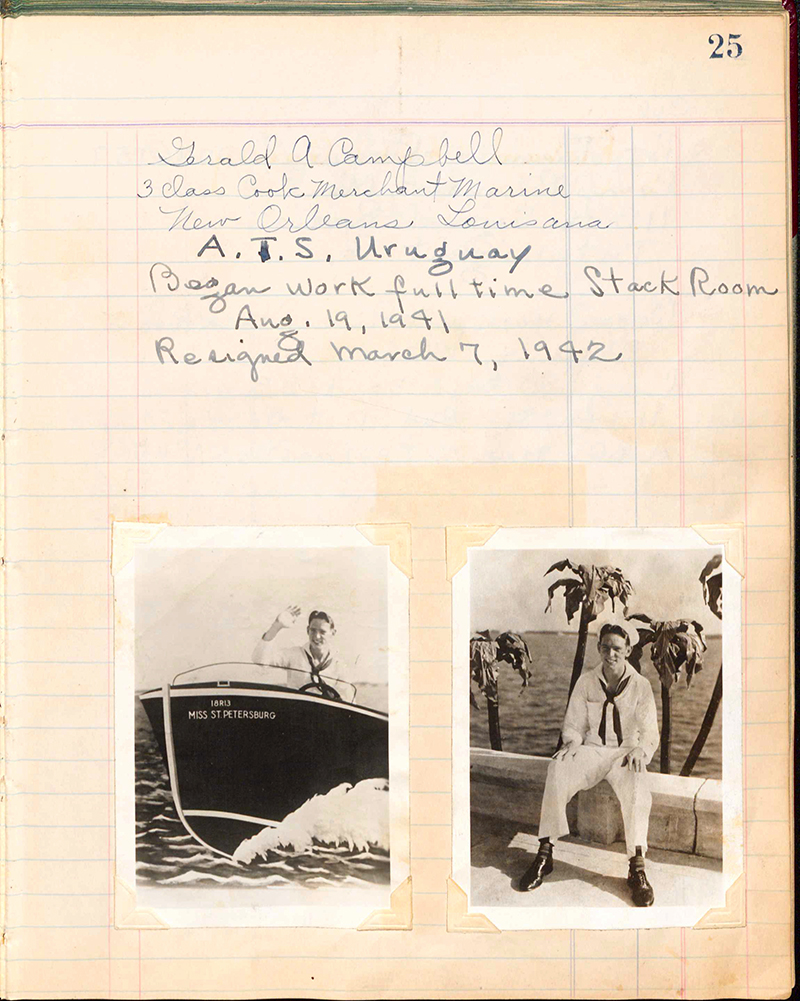 25
Gerald A Campbell
3 Class Cook Merchant Marine
New Orleans Louisana
A.T.S. Uruguay
Began work full time Stack Room
Aug. 19, 1941
Resigned March 7, 1942
18R13
MISS ST. PETERSBURG